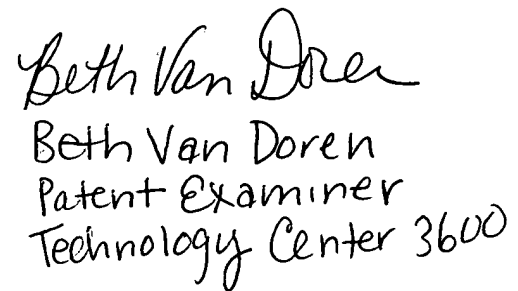 Beth Van Doren
Beth Van Doren
Patent Examiner
Technology Center 3600